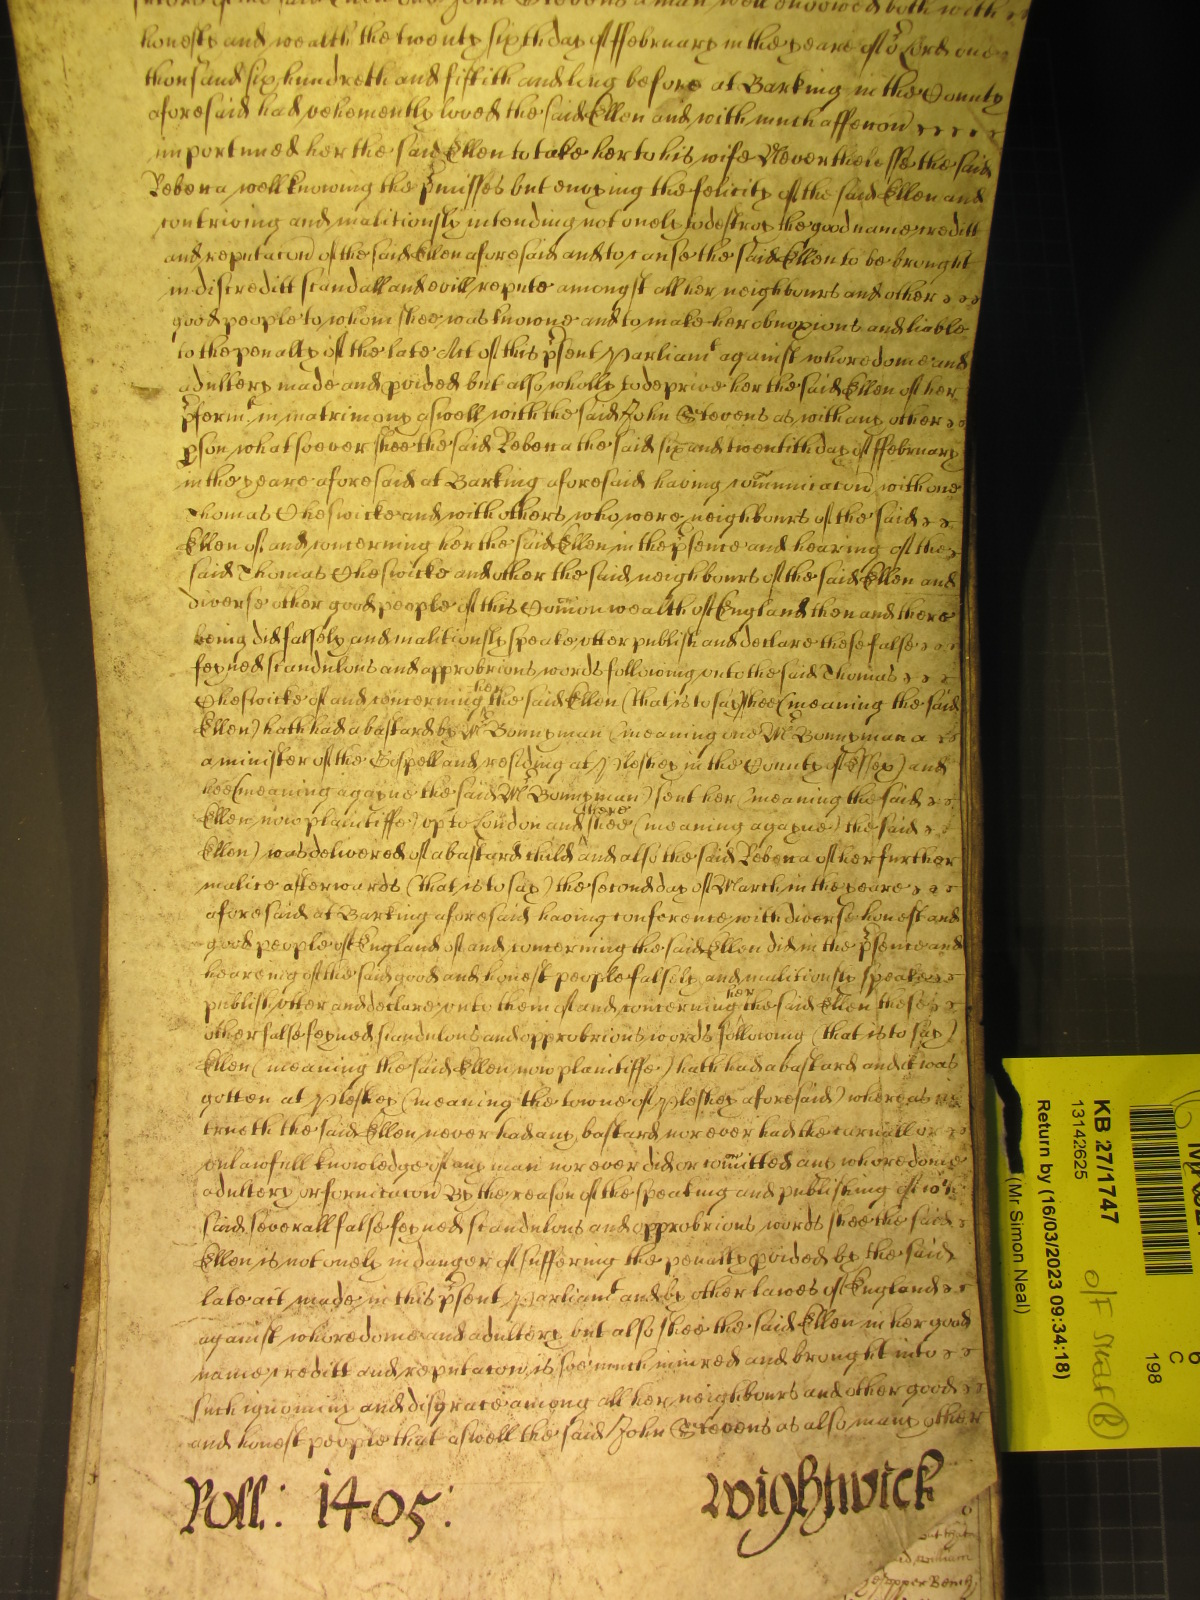 John Stevens a man well endowed both with
honesty and wealth the twenty sixth day of ffebruary in the yeare of or Lord one
thousand six hundreth and fiftith and long before at Barking in the County
aforesaid had vehemently loved the said Ellen and with much affeccon
importuned her the said Ellen to take her to his wife Neverthelesse the said
Rebecca well knowing the pmisses but envying the felicity of the said Ellen and
contriving and malitiously intending not onely to destroy the good name creditt
and reputacon of the said Ellen aforesaid and to cause the said Ellen to be brought
in discreditt scandall and evill repute amongst all her neighbours and other
good people to whom shee was knowne and to make her obnoxious and liable
to the penalty of the late Act of this psent Parliamt against whoredome and
adultery made and pvided but also wholly to deprive her the said Ellen of her
pfermt in matrimony aswell with the said John Stevens as with any other
pson whatsoever shee the said Rebecca the said six and twentith day of ffebruary
in the yeare aforesaid at Barking aforesaid having communicacon with one
Thomas Cheswicke and with others who were neighbours of the said
Ellen of and concerning her the said Ellen in the psence and hearing of the
said Thomas Cheswicke and other the said neighbours of the said Ellen and
diverse other good people of this Comonwealth of England then and there
being did falsely and malitiously speake utter publish and declare these false
feyned scandulous and approbrious words following unto the said Thomas
Cheswicke of and concerning her the said Ellen (that is to say) shee (meaning the said
Ellen) hath had a bastard by Mr Bonnyman (meaning one Mr Bonnyman a
a minister of the Gospell and residing at Pleshey in the County of Essex) and
hee (meaning agayne the said Mr Bonnyman) sent her (meaning the said
Ellen now plaintiffe) up to London and there shee (meaning agayne the said
Ellen) was delivered of a bastard child And also the said Rebecca of her further
malice afterwards (that is to say) the second day of March in the yeare
aforesaid at Barking aforesaid having conference with diverse honest and
good people of England of and concerning the said Ellen did in the psence and
heareing of the said good and honest people falsely and malitiously speake
publish utter and declare unto them of and concerning her the said Ellen these
other false feyned scandulous and approbrious words following (that is to say)
Ellen (meaning the said Ellen now plaintiffe) hath had a bastard and it was
gotten at Pleshey (meaning the towne of Pleshey aforesaid) whereas in
trueth the said Ellen never had any bastard nor ever had the carnall or
unlawfull knowledge of any man nor ever did or comitted any whoredome
adultery or fornicacon By the reason of the speaking and publishing of wch
said severall false feyned scandulous and approbrious words shee the said
Ellen is not onely in danger of suffering the penalty pvided by the said
late act made in this psent Parliamt and by other lawes of England
against whoredome and adultery but also shee the said Ellen in her good
name creditt and reputacon is soe much iniured and brought into
such ignominy and disgrace among all her neighbours and other good
and honest people that aswell the said John Stevens as also many other
Roll: 1405: Wightwick
said William
upper Bench
KB 27/1747
13142625
Return by (16/03/2023 09:34:18)
(Mr Simon Neal)
C
198